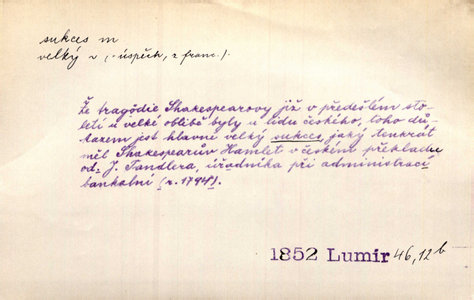 sukces m
velký v (= úspěch, z franc.).
Že tragödie Shakespearovy již v předešlém sto-
letí u velké oblibě byly u lidu českého, toho dů-
kazem jest hlavně velký sukces, jaký tenkrát
měl Shakespearův Hamlet v českém překladu
od J. Tandlera, úřadníka při administrací
bankální (r. 1794).
1852 Lumír 46,12b